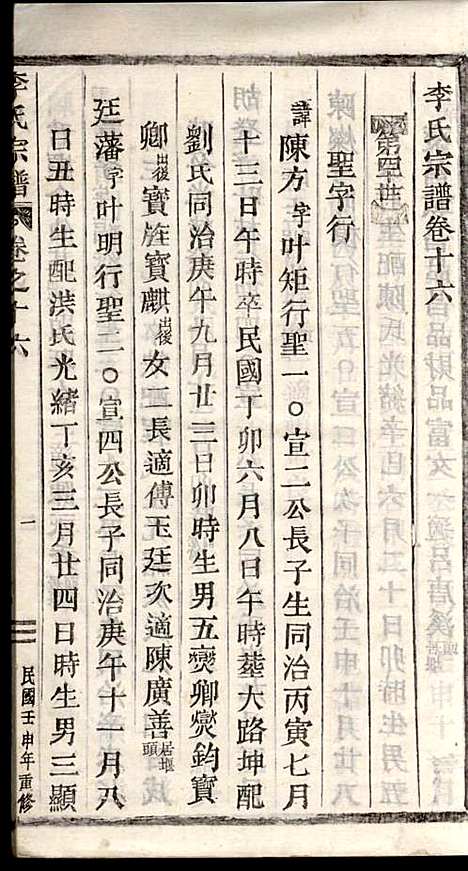 李氏宗譜卷十六
第四十世
聖字行
諱陳方字叶矩行聖一〇宣二公長子生同治丙寅七月
十三日午時卒民國丁卯六月八日午時塟大路坤配
劉氏同治庚午九月廿三日卯時生男五爕卿爕鈞寶
卿出後寶旌寶麒出後女二長適傅玉廷次適陳廣善居堰頭
廷藩字叶明行聖二〇宣四公長子同治庚午十一月八
日丑時生配洪氏光緒丁亥三月廿四日時生男三顯
李氏宗譜 卷之十六
一
民國壬申年重修